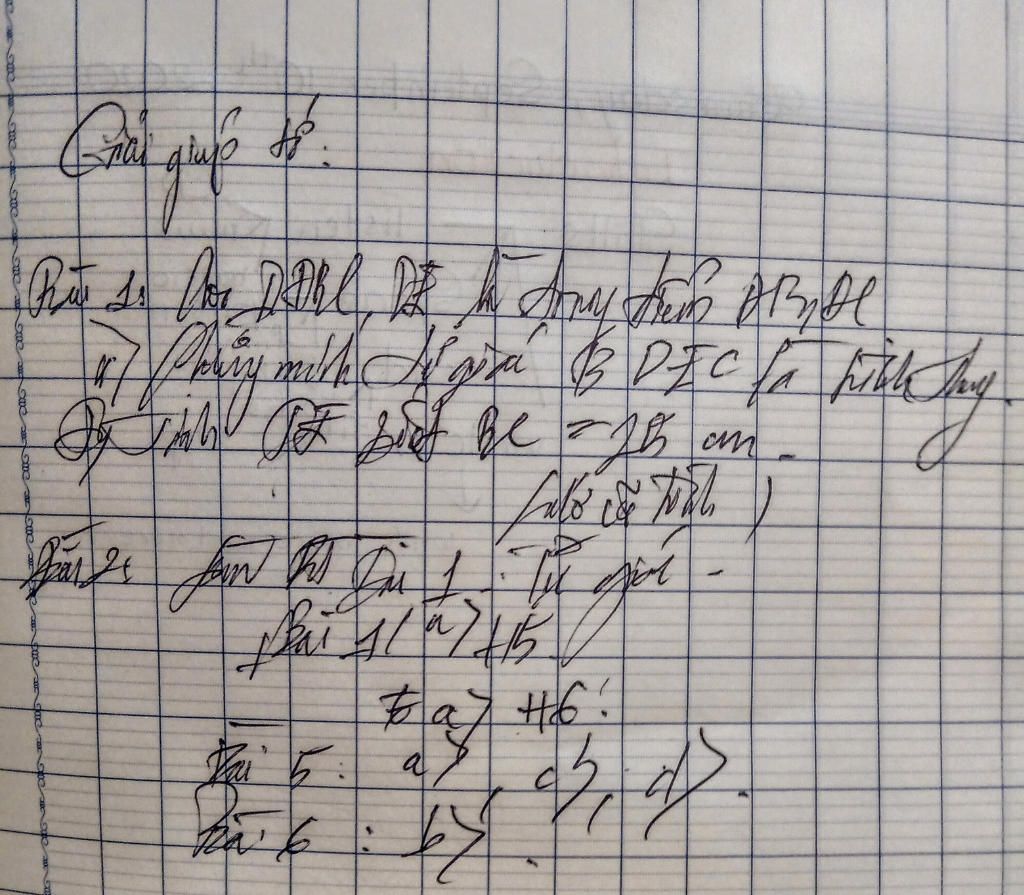 Giải giúp tớ:
Bài 1: Cho ΔABC, DE là trung điểm AB, AC
a) Chứng minh tứ giác BDEC là hình thang.
b) Tính DE biết BC = 25 cm.
(nhớ vẽ hình)
Bài 2: Làm Bài 1. Tứ giác.
+ Bài 1( a) H5.
a) H6.
Bài 5: a), c), d).
Bài 6: b).